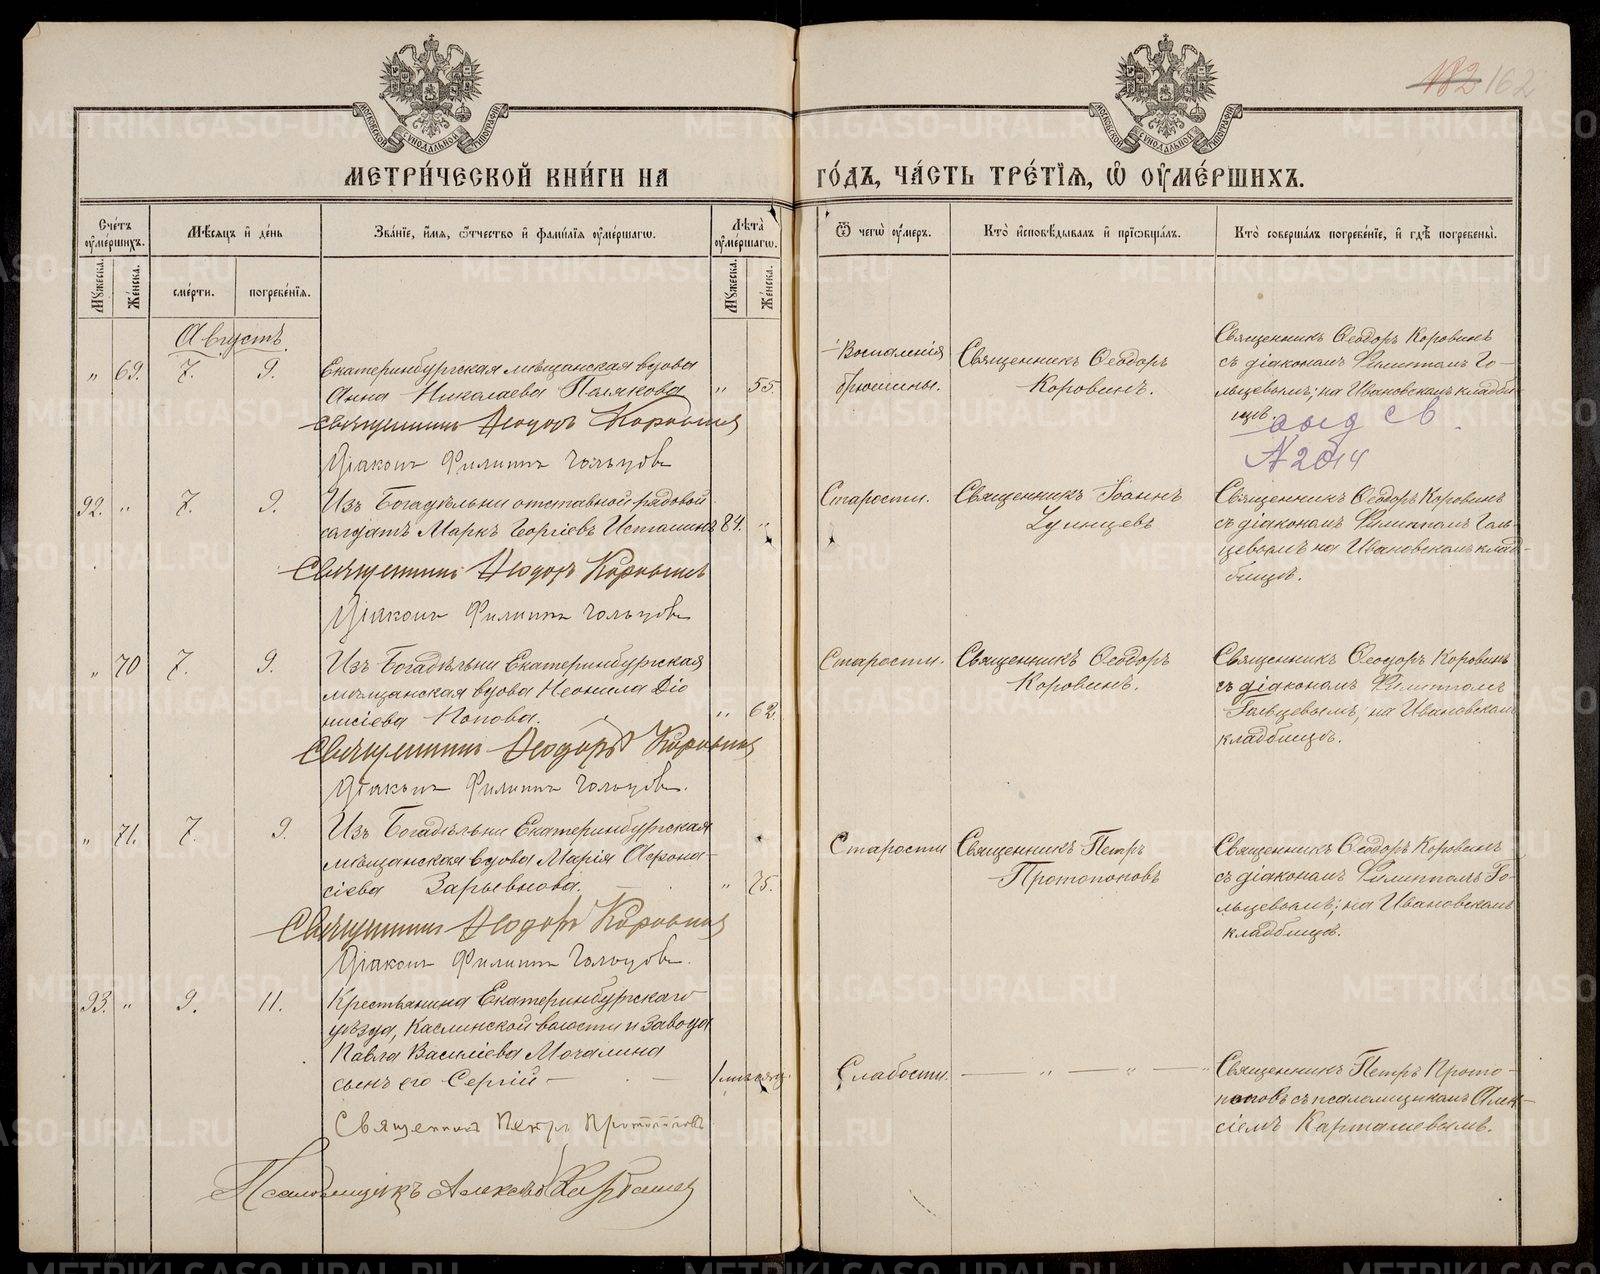 182 162
МЕТРИ́ЧЕСКОЙ КНИ́ГИ НА ГО́ДЪ, ЧА́СТЬ ТРЕ́ТІѦ, Ѡ ОУМЕ́РШИХЪ.
Сче́тъ оумѐршихъ.
Мѣ́сяцъ и де́нь
Зва́нїе, и́мя, о́тчество и фами́лїя оуме́ршагѡ.
Лѣ́та оуме́ршагѡ.
Ѿ чегѡ̀ оу́меръ.
Кто̀ и҆сповѣ́дывалъ и҆ прїѡбща́лъ.
Кто̀ соверша́лъ погребе́нїе, и҆ гдѣ̀ погребены̀.
Мꙋ́жеска.
Же́нска.
сме́рти.
погребе́нїя.
Мꙋ́жеска.
Же́нска.
Августъ
" 69. 7. 9.
Екатеринбургская мѣщанская вдова
Анна Николаева Полякова " 55.
Священникъ Ѳеодоръ Коровинъ
Діаконъ Филиппъ Гольцовъ
Воспаленія
брюшины.
Священникъ Ѳеодоръ
Коровинъ.
Священникъ Ѳеодоръ Коровинъ
съ діакономъ Филиппомъ Го-
льцевымъ; на Ивановскомъ кладби
щѣ.
N 2014
92. " 7. 9.
Изъ Богадѣльни отставной рядовой
солдатъ Маркъ Георгіевъ 84. "
Священникъ Ѳеодоръ Коровинъ
Діаконъ Филиппъ Гольцовъ
Старости.
Священникъ Іоаннъ
Священникъ Ѳеодоръ Коровинъ
съ діакономъ Филиппомъ Голь-
цевымъ на Ивановскомъ клад-
бищѣ.
" 70 7. 9.
Изъ Богадѣльни Екатеринбургская
мѣщанская вдова Неонила Діо
нисіева Попова. " 62.
Священникъ Ѳеодоръ Коровинъ
Діаконъ Филиппъ Гольцовъ.
Старости.
Священникъ Ѳеодоръ
Коровинъ.
Священникъ Ѳеодоръ Коровинъ
съ діакономъ Филиппомъ
Гольцевымъ, на Ивановскомъ
кладбищѣ.
" 71. 7. 9.
Изъ Богадѣльни Екатеринбургская
мѣщанская вдова Марія Афона-
сіева " 75.
Священникъ Ѳеодоръ Коровинъ
Діаконъ Филиппъ Гольцовъ.
Старости
Священникъ Петръ
Протопоповъ
Священникъ Ѳеодоръ Коровинъ
съ діакономъ Филиппомъ Го-
льцевымъ; на Ивановскомъ
кладбищѣ.
93. " 9. 11.
Крестьянина Екатеринбургскаго
уѣзда, Каслинской волости и завода
Павла Василіева Мочалина
сынъ его Сергій — — 1 мѣсяц.
Священникъ Петръ Протопоповъ
Псаломщикъ Алексѣй Карташевъ
Слабости. — " — " —
Священникъ Петръ Прото-
поповъ съ псаломщикомъ Алек-
сіемъ Карташевымъ.
METRIKI.GASO-URAL.RU